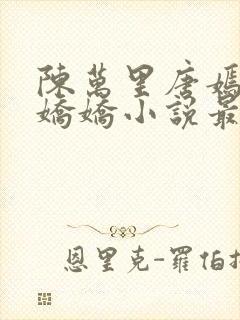 陳萬里唐嫣
嬌嬌小說最
恩里克-羅伯托